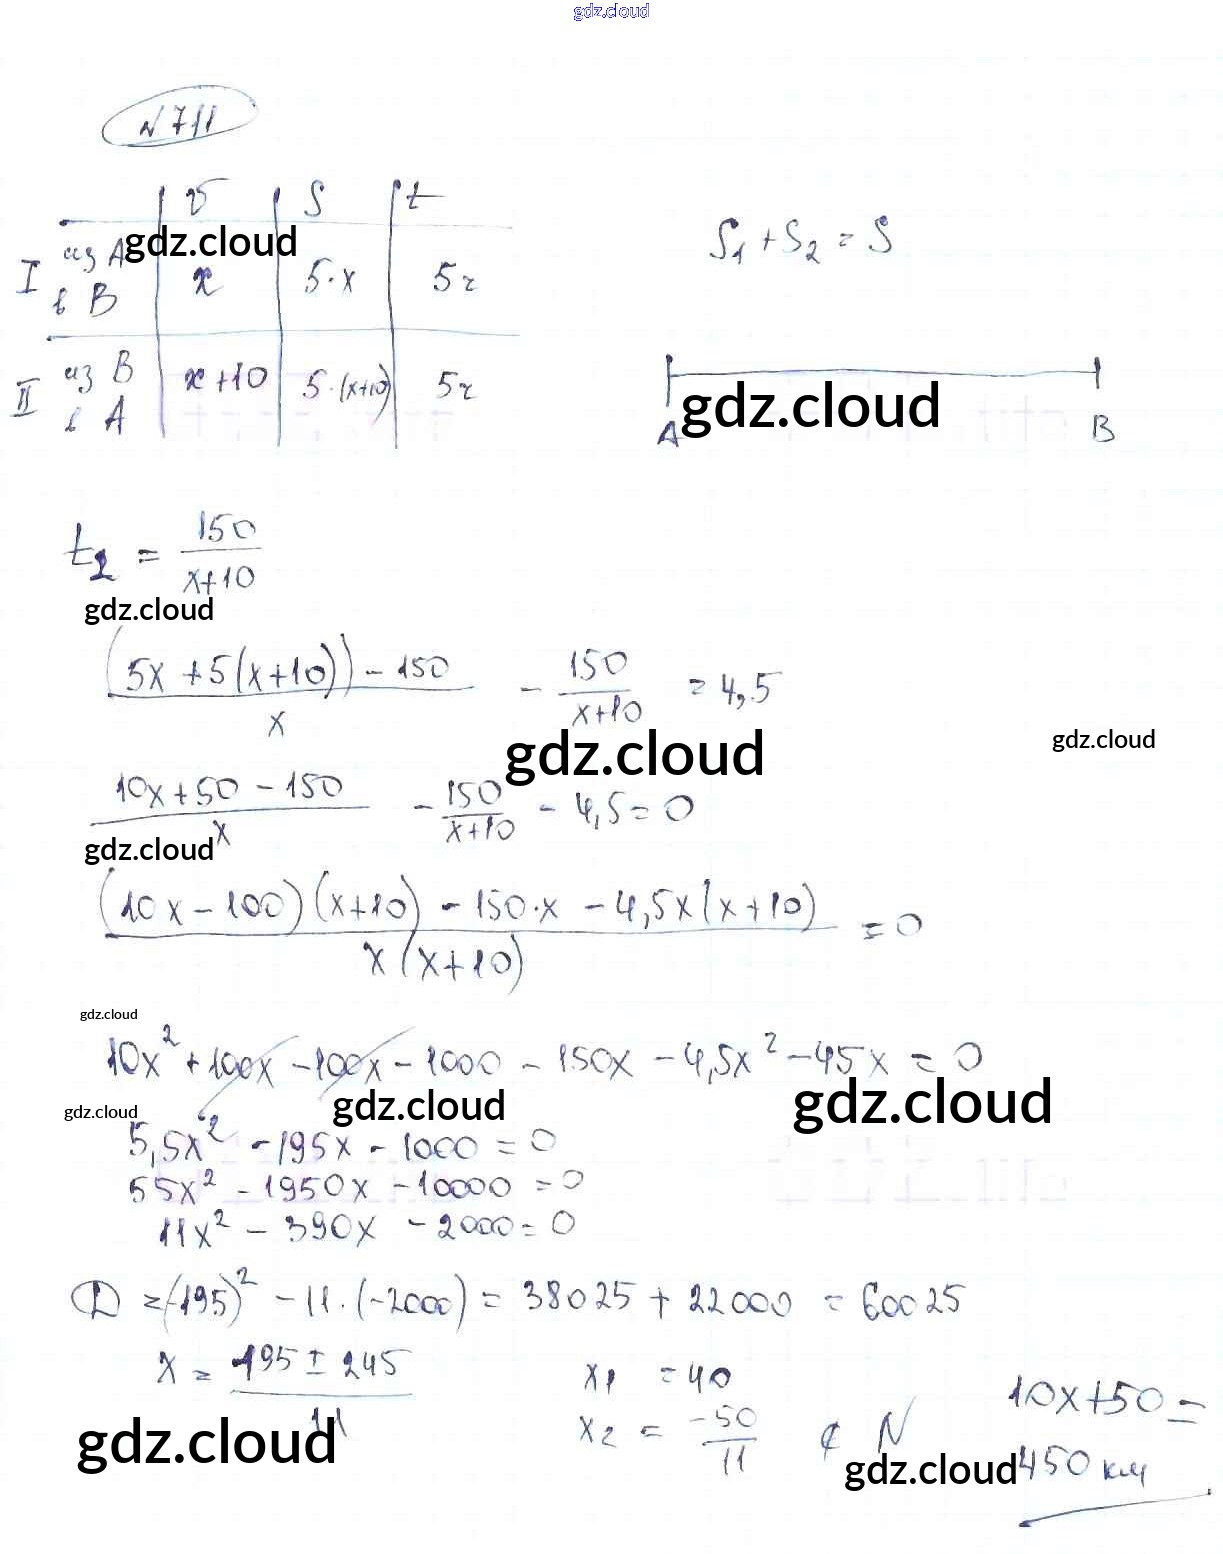 gdz.cloud
N 711
v S t
I из A в B x 5·x 5ч
gdz.cloud
S₁ + S₂ = S
II из B в A x+10 5·(x+10) 5ч
A B
gdz.cloud
t₂ = 150/(x+10)
gdz.cloud
((5x + 5(x+10)) - 150)/x - 150/(x+10) = 4,5
gdz.cloud
gdz.cloud
(10x + 50 - 150)/x - 150/(x+10) - 4,5 = 0
gdz.cloud
((10x - 100)(x+10) - 150·x - 4,5x(x+10))/(x(x+10)) = 0
gdz.cloud
10x² + 100x - 100x - 1000 - 150x - 4,5x² - 45x = 0
gdz.cloud
gdz.cloud
gdz.cloud
5,5x² - 195x - 1000 = 0
55x² - 1950x - 10000 = 0
11x² - 390x - 2000 = 0
D = (-195)² - 11·(-2000) = 38025 + 22000 = 60025
x = (195 ± 245)/11
x₁ = 40
x₂ = -50/11 ∉ N
10x+50 =
450 км
gdz.cloud
gdz.cloud